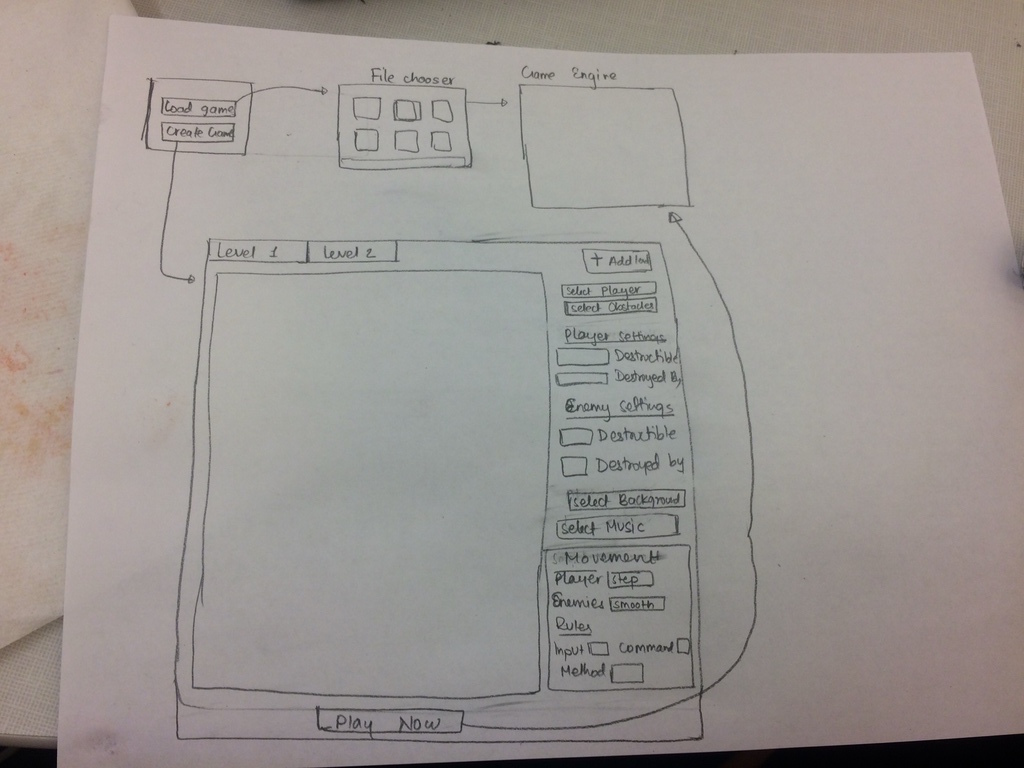 File chooser
Game Engine
Load game
Create Game
Level 1
Level 2
+ Add
Select Player
Select Obstacles
Player settings
Destructible
Destroyed By
Enemy settings
Destructible
Destroyed by
Select Backgroud
Select Music
Movement
Player Step
Enemies smooth
Rules
Input Command
Method
Play Now